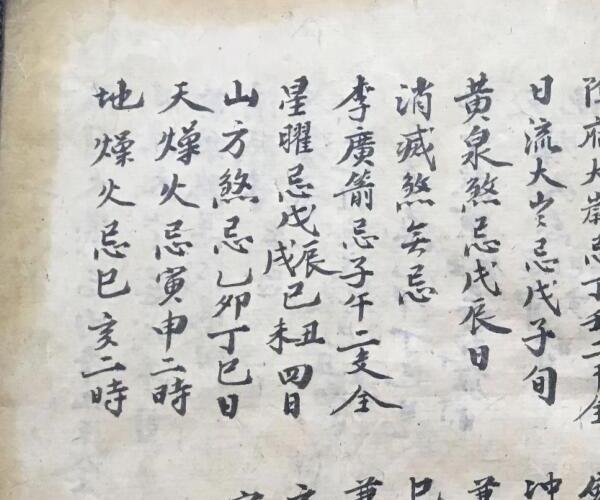 府大歲忌丁壬二干全
日流大歲忌戊子旬
黃泉煞忌戊辰日
消滅煞無忌
李廣箭忌子午二支全
星曜忌戊辰戌己丑未四日
山方煞忌乙卯丁巳日
天燥火忌寅申二時
地燥火忌巳亥二時